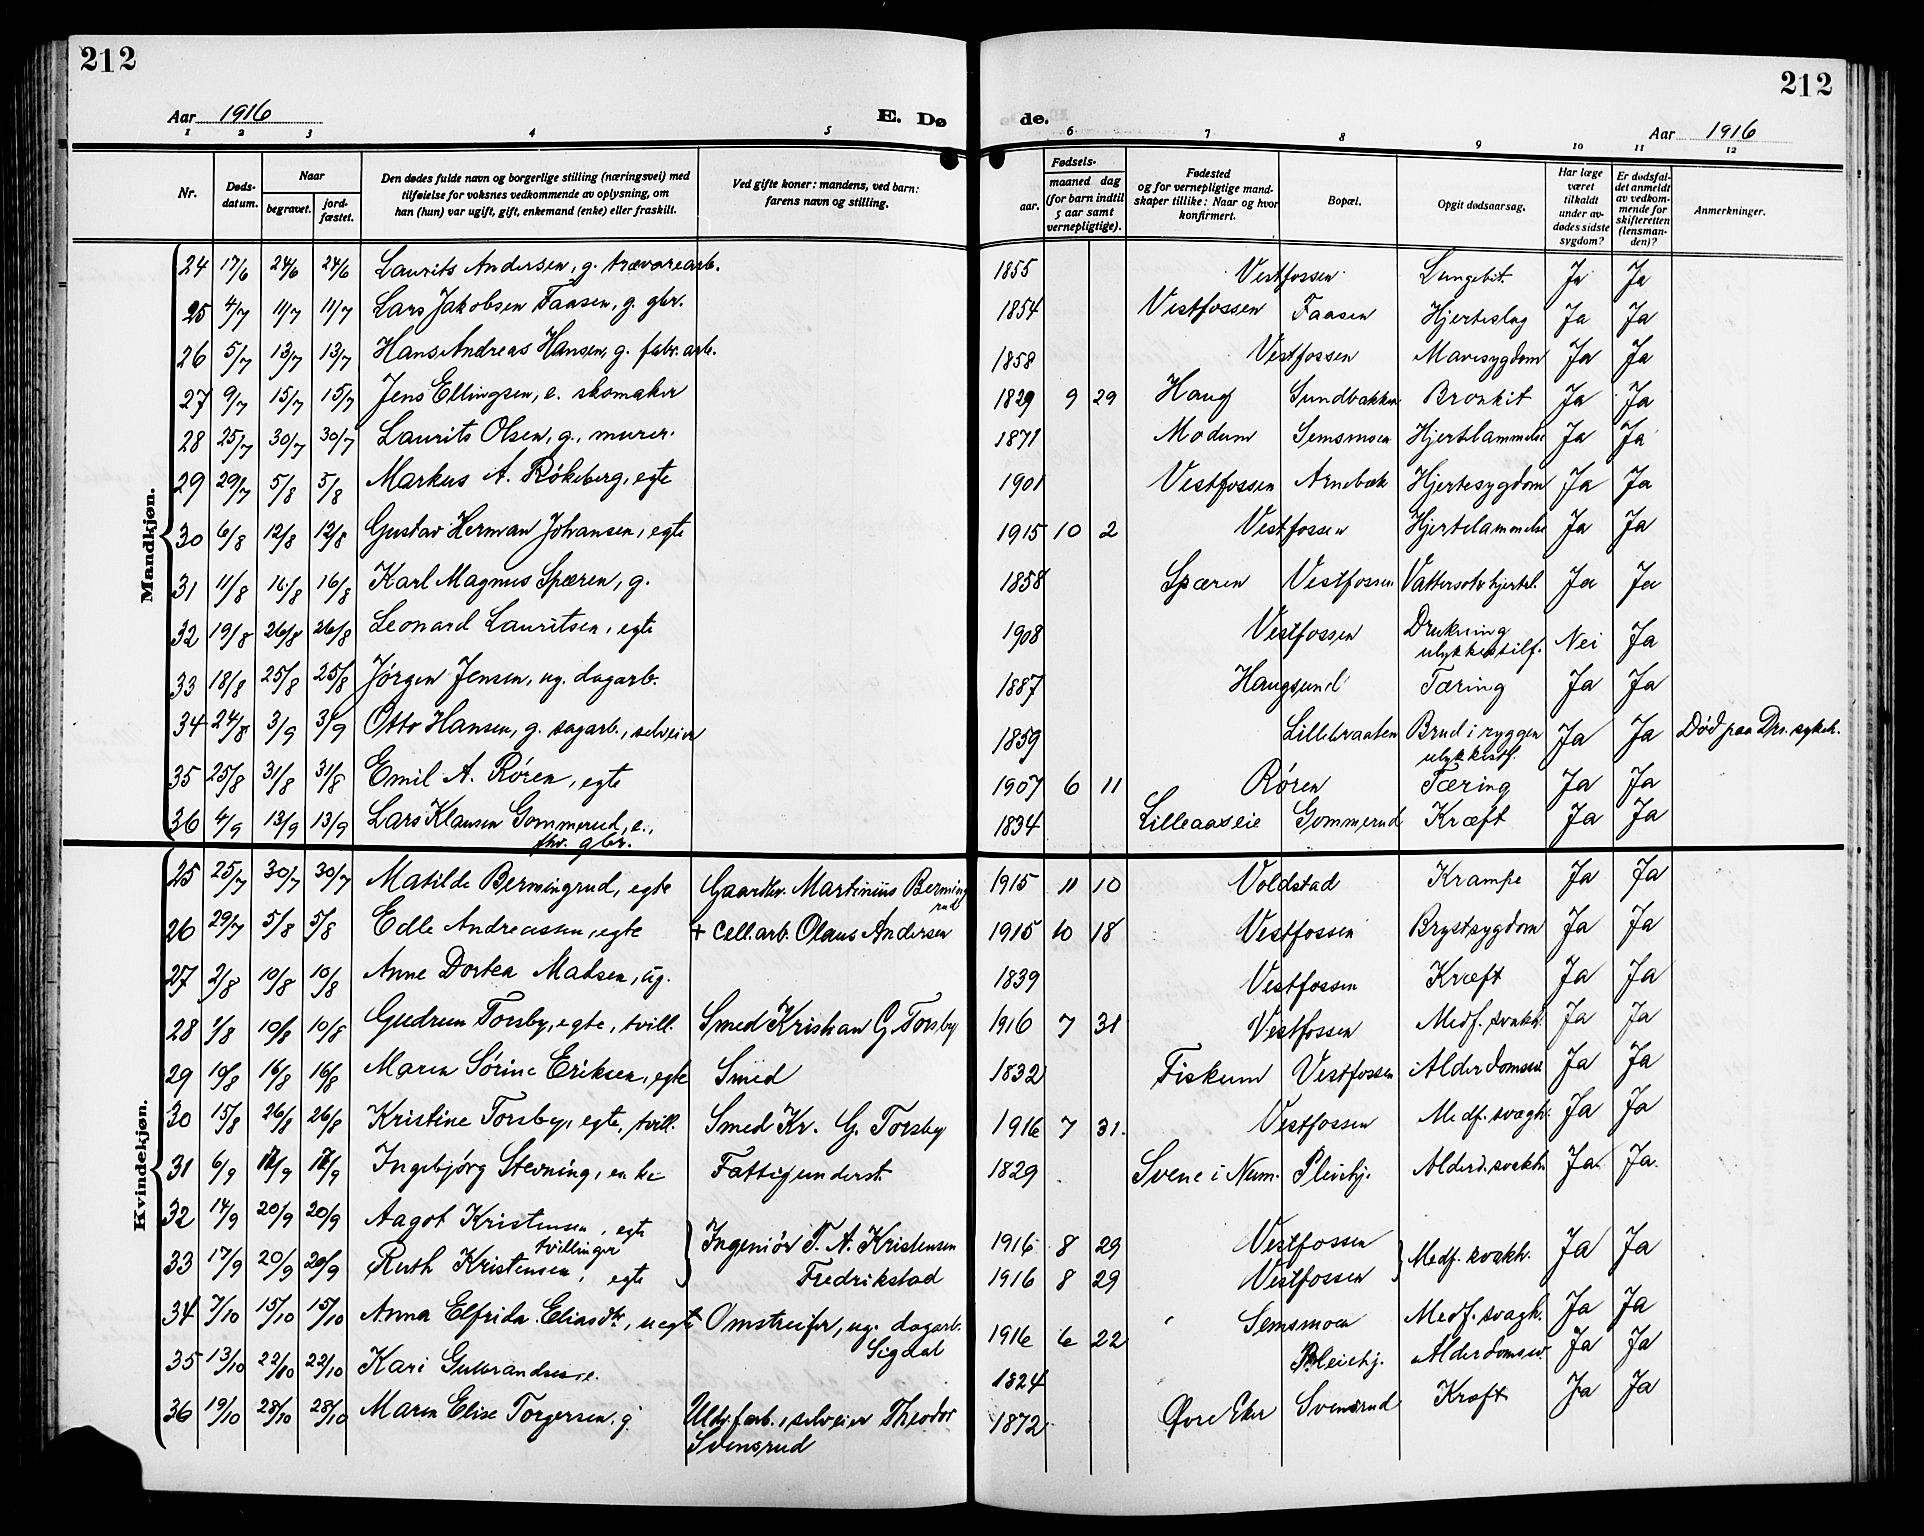 212
212
Aar 1916
E. Dø
de.
Aar 1916
1 2 3 4 5 6 7 8 9 10 11 12
Nr.
Døds-
datum.
Naar
begravet.
jord-
fæstet.
Den dødes fulde navn og borgerlige stilling (næringsvei) med
tilføielse for voksnes vedkommende av oplysning, om
han (hun) var ugift, gift, enkemand (enke) eller fraskilt.
Ved gifte koner: mandens, ved barn:
farens navn og stilling.
Fødsels-
aar.
maaned dag
(for barn indtil
5 aar samt
vernepligtige).
Fødested
og for vernepligtige mand-
skaper tillike: Naar og hvor
konfirmert.
Bopæl.
Opgit dødsaarsag.
Har læge
været
tilkaldt
under av-
dødes sidste
sygdom?
Er dødsfal-
det anmeldt
av vedkom-
mende for
skifteretten
(lensman-
den)?
Anmerkninger.
Mandkjøn.
24 17/6 24/6 24/6 Laurits Andersen, g. trævarearb. 1855 Vestfossen Lungebet. Ja Ja
25 4/7 11/7 11/7 Lars Jakobsen Faasen, g. gbr. 1854 Vestfossen Faasen Hjerteslag Ja Ja
26 5/7 13/7 13/7 Hans Andreas Hansen, g. fabr. arb. 1858 Vestfossen Mavesygdom Ja Ja
27 9/7 15/7 15/7 Jens Ellingsen, e. skomaker 1829 9 29 Haug Sundbakken Bronkit Ja Ja
28 25/7 30/7 30/7 Laurits Olsen, g., murer. 1871 Modum Semsmoen Hjertelammelse Ja Ja
29 29/7 5/8 5/8 Markus A. Røkeberg, egte 1901 Vestfossen Arnebæk Hjertesygdom Ja Ja
30 6/8 12/8 12/8 Gustav Herman Johansen, egte 1915 10 2 Vestfossen Hjertelammelse Ja Ja
31 11/8 16/8 16/8 Karl Magnus Spæren, g. 1858 Spæren Vestfossen Vattersot hjertel. Ja Ja
32 19/8 26/8 26/8 Leonard Lauritsen, egte 1908 Vestfossen Drukning
ulykkestilf. Nei Ja
33 18/8 25/8 25/8 Jørgen Jensen, ug. dagarb. 1887 Haugsund Tæring Ja Ja
34 24/8 3/9 3/9 Otto Hansen, g. sagarb., selveier 1859 Lillebraaten Brud i ryggen
ulykkestf. Ja Ja Død paa Drs. sykeh.
35 25/8 31/8 31/8 Emil A. Røren, egte 1907 6 11 Røren Tæring Ja Ja
36 4/9 13/9 13/9 Lars Klausen Gommerud, e.,
fhv. gbr. 1834 Lilleaaseie Gommerud Kræft Ja Ja
Kvindekjøn.
25 25/7 30/7 30/7 Matilde Bermingrud, egte Gaardbr. Martinius Berming
rud 1915 11 10 Voldstad Krampe Ja Ja
26 29/7 5/8 5/8 Edle Andreassen, egte + Cell.arb. Olaus Andersen 1915 10 18 Vestfossen Brystsygdom Ja Ja
27 2/8 10/8 10/8 Anne Dortea Madsen, ug. 1839 Vestfossen Kræft Ja Ja
28 1/8 10/8 10/8 Gudrun Torsby, egte, tvill. Smed Kristian G. Torsby 1916 7 31 Vestfossen Medf. svakh. Ja Ja
29 10/8 16/8 16/8 Maren Sørine Eriksen, egte Smed 1832 Fiskum Vestfossen Alderdomssv. Ja Ja
30 15/8 26/8 26/8 Kristine Torsby, egte, tvill. Smed Kr. G. Torsby 1916 7 31. Vestfossen Medf. svagh. Ja Ja
31 6/9 12/9 12/9 Ingebjørg Stevning, enke Fattigunderst. 1829 Svene i Num. Pleiehj. Alderd. svakh. Ja Ja
32 14/9 20/9 20/9 Aagot Kristensen, egte Ingeniør T. A. Kristensen 1916 8 29 Vestfossen Medf. svakh. Ja Ja
tvillinger
33 17/9 20/9 20/9 Ruth Kristensen, egte Fredrikstad 1916 8 29 Vestfossen
34 7/10 15/10 15/10 Anna Elfrida Eliasdtr, uegte Omstreifer, ug. dagarb.
Sigdal 1916 6 22 Semsmoen Medf. svagh. Ja Ja
35 13/10 22/10 22/10 Kari Gulbrandsen e. 1824 Pleiehj. Alderdomssv. Ja Ja
36 19/10 28/10 28/10 Maren Elise Torgersen, g. arb., selveier Theodor
Svensrud 1872 Øvre Eker Svensrud Kræft Ja Ja